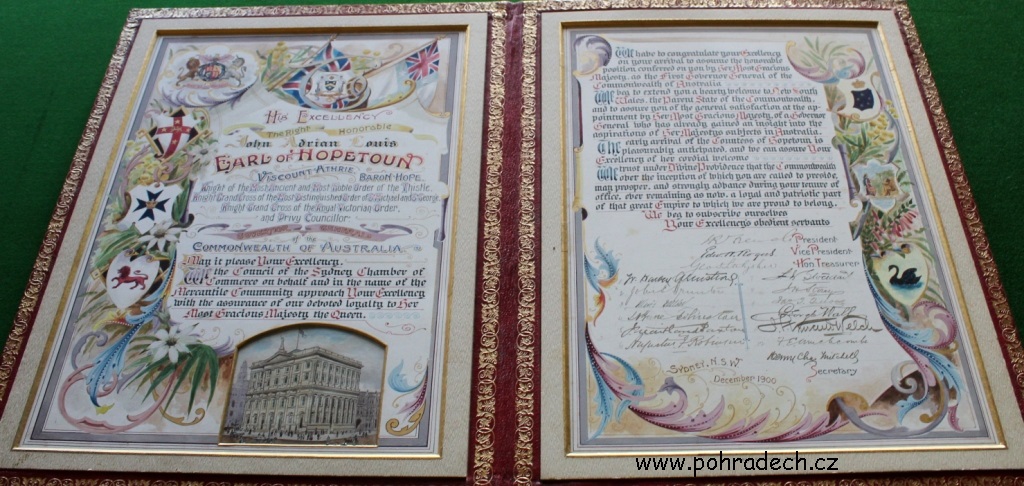 His Excellency
The Right Honorable
John Adrian Louis
Earl of Hopetoun
Viscount Athrie Baron Hope
Knight of the Most Ancient and Most Noble Order of the Thistle,
Knight Grand Cross of the Most Distinguished Order of S. Michael and S. George,
Knight Grand Cross of the Royal Victorian Order,
and Privy Councillor
Governor General
of the
Commonwealth of Australia.
May it please Your Excellency,
We the Council of the Sydney Chamber of
Commerce on behalf and in the name of the
Mercantile Community approach Your Excellency
with the assurance of our devoted loyalty to Her
Most Gracious Majesty the Queen.
We have to congratulate your Excellency
on your arrival to assume the honorable
position conferred on you by Her Most Gracious
Majesty, as the First Governor General of the
Commonwealth of Australia
We beg to extend you a hearty welcome to New South
Wales, the Parent State of the Commonwealth,
and to assure you of the general satisfaction at the ap-
pointment by Her Most Gracious Majesty, of a Governor
General who has already gained an insight into the
aspirations of Her Majestys subjects in Australia.
The early arrival of the Countess of Hopetoun is
pleasurably anticipated, and we can assure Your
Excellency of her cordial welcome
We trust under Divine Providence that the Commonwealth
over the inception of which you are called to preside,
may prosper, and strongly advance during your tenure of
office, ever remaining as now, a loyal and patriotic part
of that great Empire to which we are proud to belong.
We beg to subscribe ourselves
Your Excellency's obedient servants
President
Vice President
Hon Treasurer
Secretary
Sydney, N.S.W.
December 1900
www.pohradech.cz